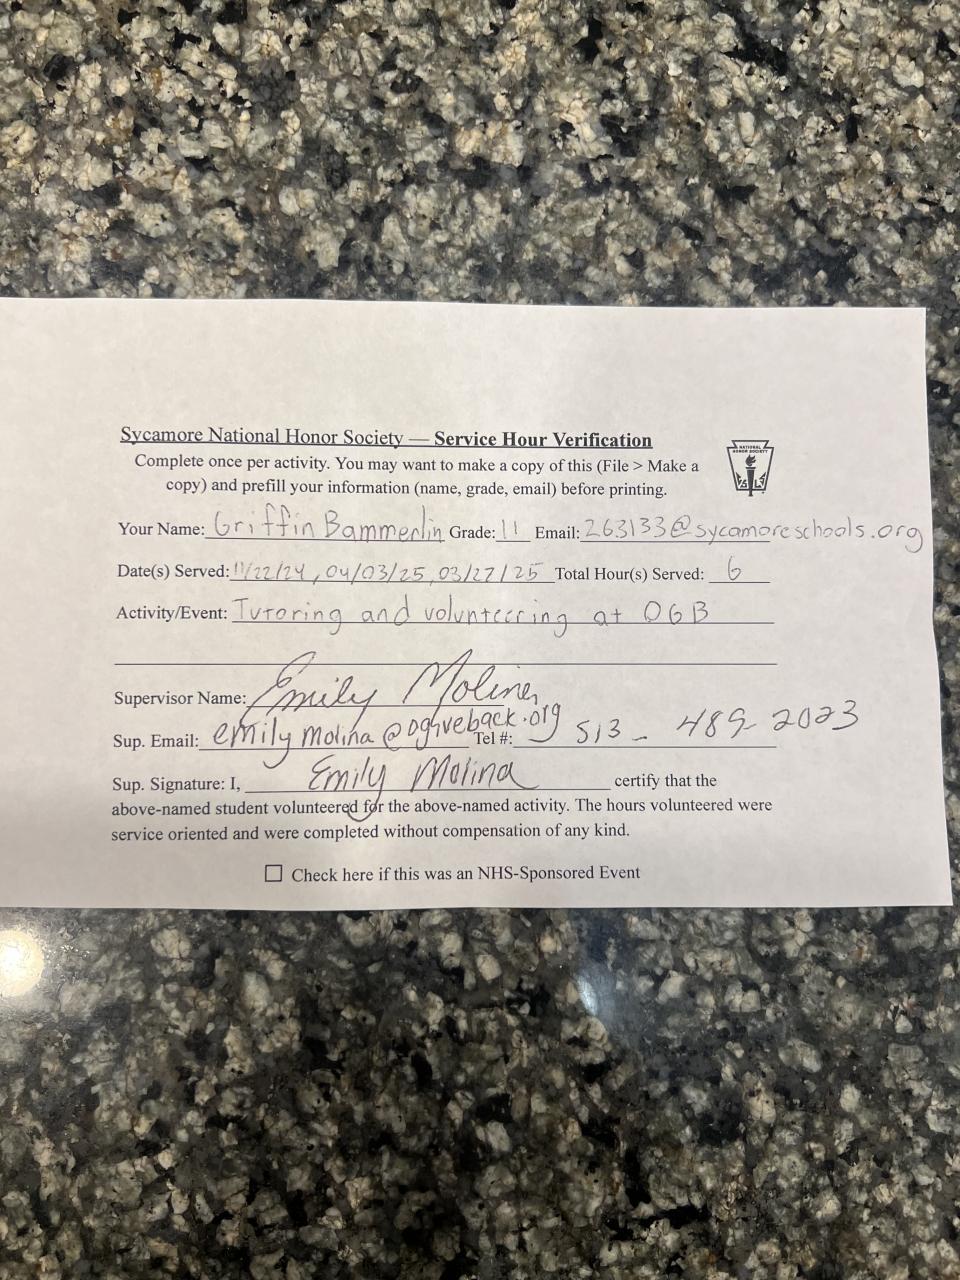 Sycamore National Honor Society — Service Hour Verification
Complete once per activity. You may want to make a copy of this (File > Make a
copy) and prefill your information (name, grade, email) before printing.
NATIONAL
HONOR SOCIETY
Your Name: Griffin Bammerlin Grade: 11 Email: 263133@sycamoreschools.org
Date(s) Served: 11/22/24, 04/03/25, 03/27/25 Total Hour(s) Served: 6
Activity/Event: Tutoring and volunteering at OGB
Supervisor Name: Emily Molina
Sup. Email: emilymolina@ogiveback.org Tel #: 513-489-2023
Sup. Signature: I, Emily Molina certify that the
above-named student volunteered for the above-named activity. The hours volunteered were
service oriented and were completed without compensation of any kind.
☐ Check here if this was an NHS-Sponsored Event